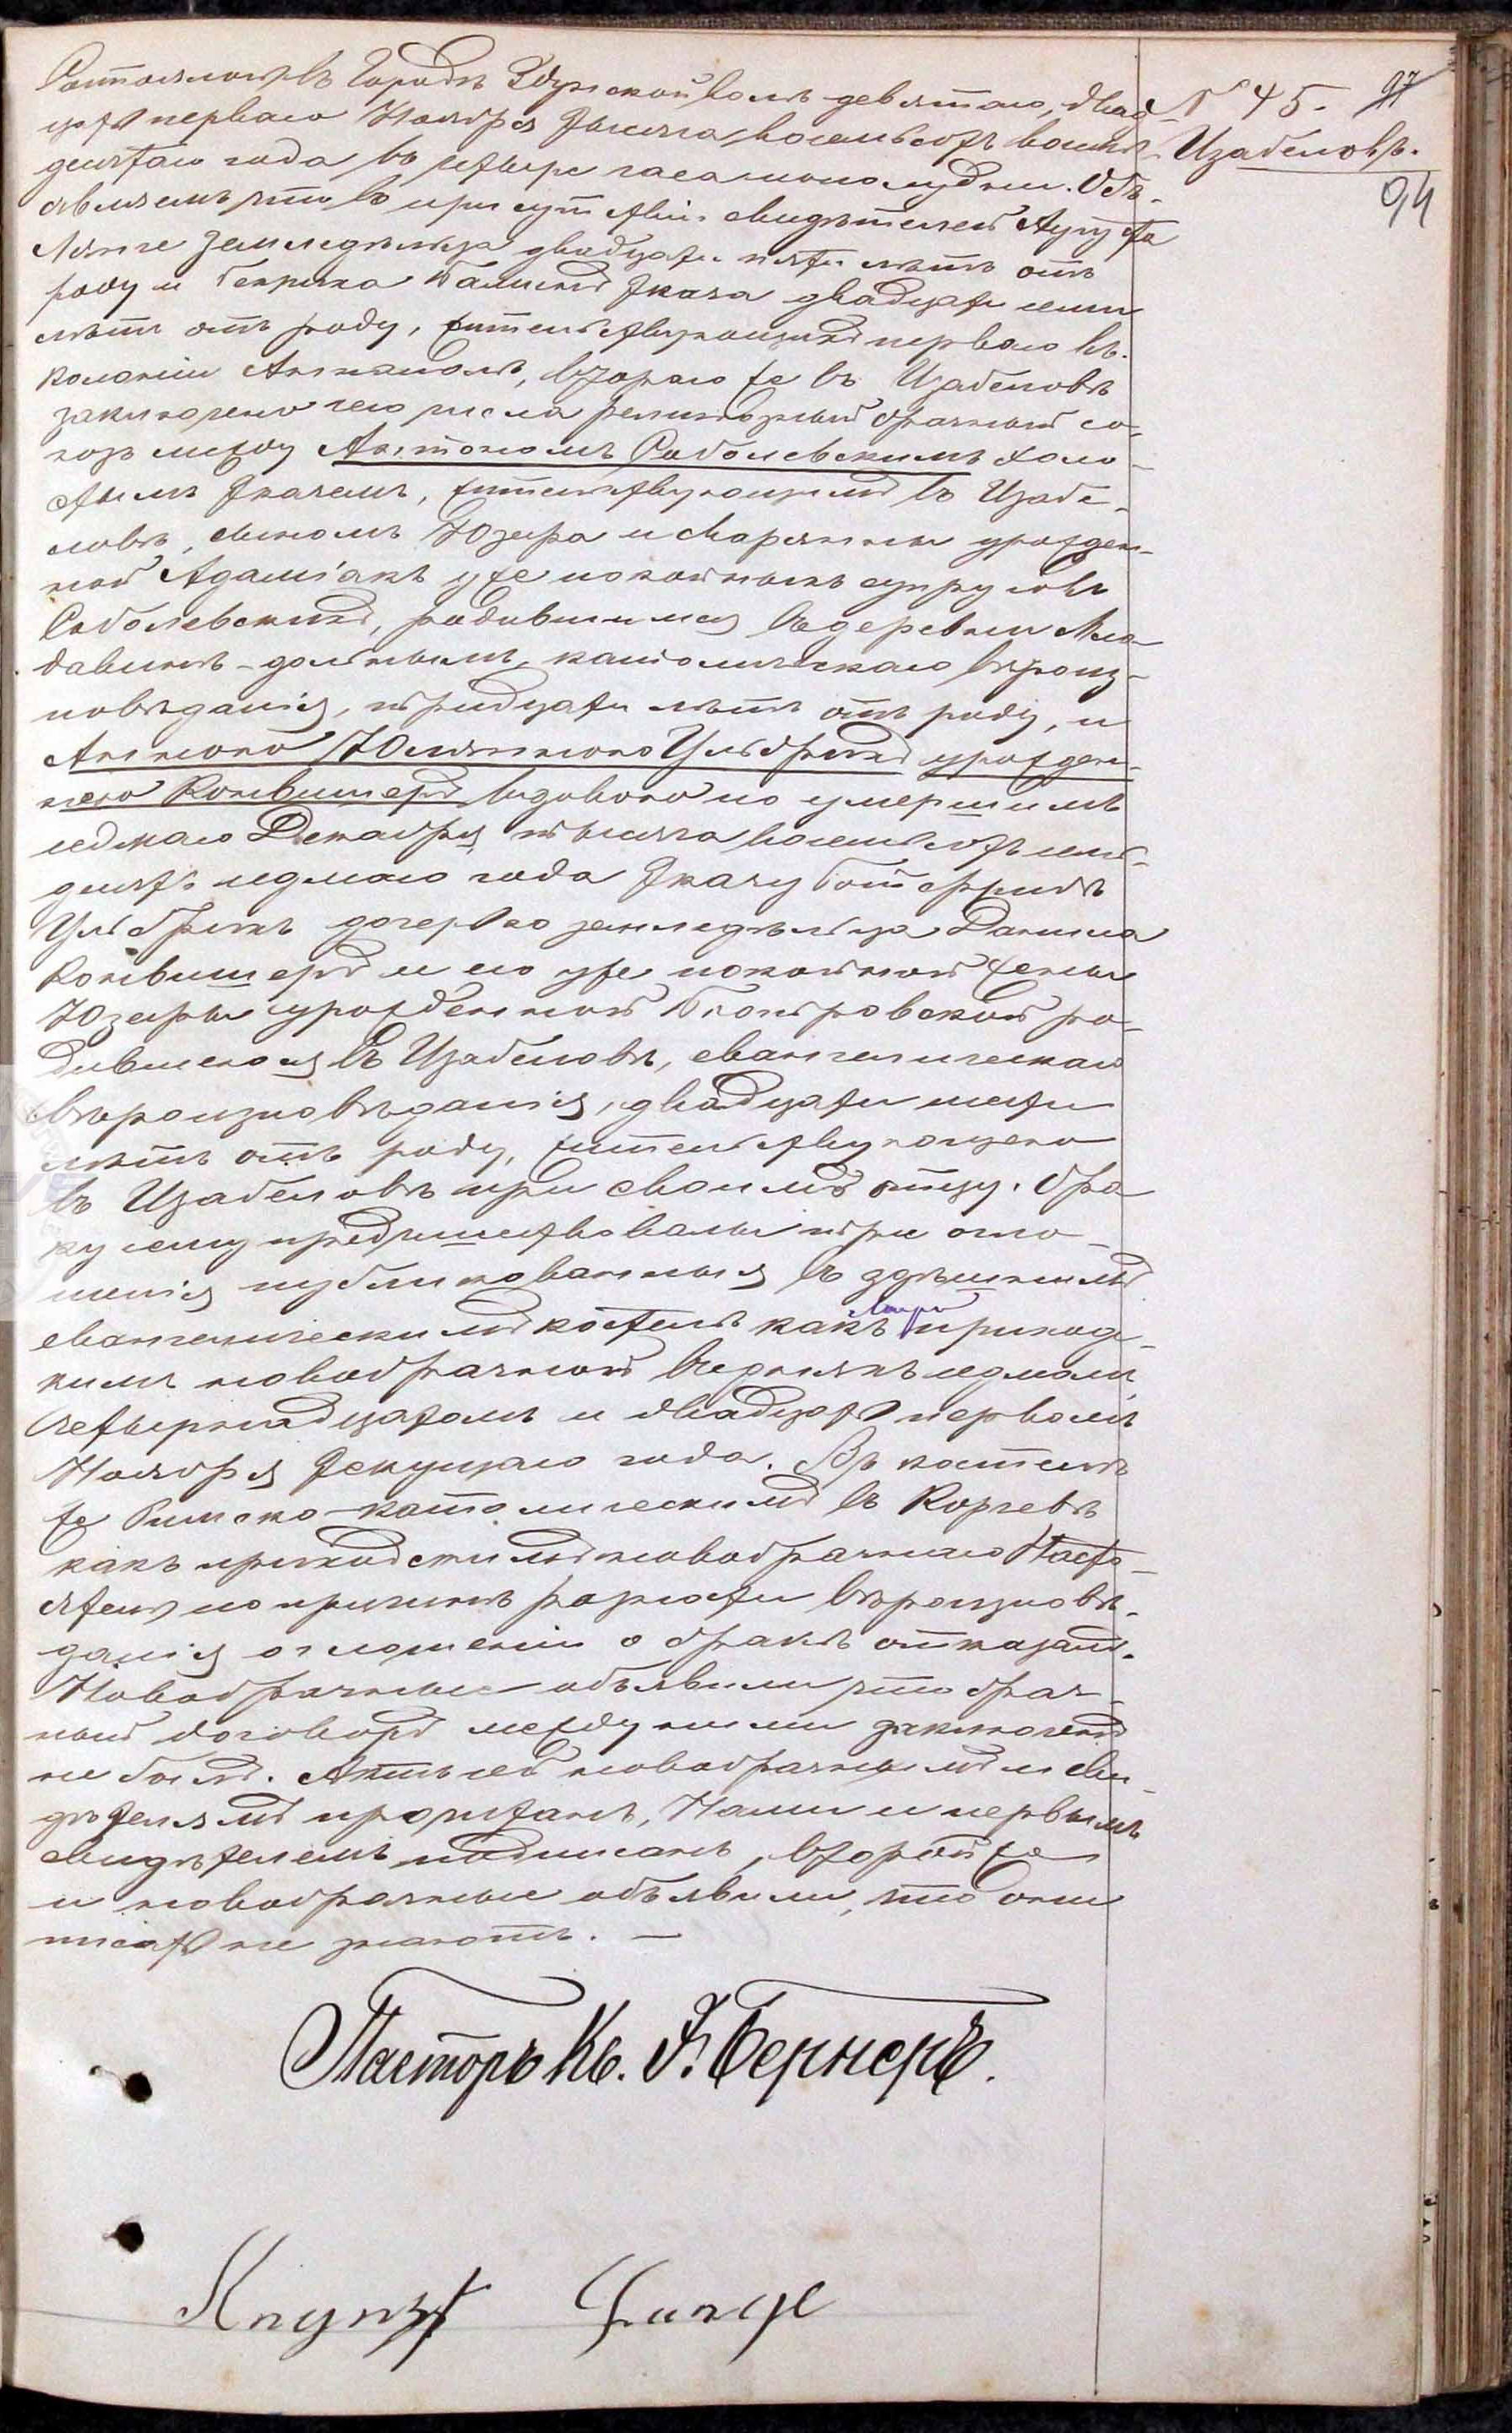 № 45. 97
Изабеловъ.
94
Состоялось въ Городѣ Здунской волѣ девятаго, двад-
цать перваго Ноября тысяча восемьсотъ восемь-
десятаго года въ четыре часа пополудни. Объ-
являемъ что въ присутствіи свидѣтелей Августа
Лянге земледѣльца двадцати пяти лѣтъ отъ
роду и Генриха ткача двадцати семи
лѣтъ отъ роду, жительствующихъ перваго въ
колоніи, втораго же въ Изабеловѣ
заключено сего числа религіозный брачный со-
юзъ между Антономъ Соболевскимъ холо-
стымъ ткачемъ, жительствующимъ въ Изабе-
ловѣ, сыномъ Юзефа и Марянны урожден-
ной Адаміакъ уже покойныхъ супруговъ
Соболевскихъ, родившимся въ деревни Мло
давинъ-дольнымъ, католическаго вѣроис-
повѣданія, тридцати лѣтъ отъ роду, и
Анною Юлянною Ульбрихъ урожден-
ною Конвишеръ вдовою по умершимъ
седмаго Декабря тысяча восемьсотъ семь-
десятъ седмаго года ткачу Готфридѣ
Ульбрихъ дочерью земледѣльца Данила
Конвишеръ и его уже покойной жены
Юзефы урожденной Піотровской ро-
дившеюся въ Изабеловѣ, евангелическаго
вѣроисповѣданія, двадцати шести
лѣтъ отъ роду, жительствующею
въ Изабеловѣ при своимъ отцу. Бра
ку сему предшествовали три огло-
шенія публикованныя въ здѣшнимъ
евангелическимъ костелѣ какъ приход-
скимъ новобрачной въ дняхъ седмомъ,
четырнадцатомъ и двадцать первомъ
Ноября текущаго года. Въ костелѣ
же Римско-католическимъ въ Корчевѣ
какъ приходскимъ новобрачнаго Насто-
ятель по причинѣ разности вѣроисповѣ-
данія оглошеніи о бракѣ отказалъ.
Новобрачные объявили что брач-
ный договоръ между ними заключенъ
не былъ. Актъ сей новобрачнымъ и сви-
дѣтелямъ прочитанъ, Нами и первымъ
свидѣтелемъ подписанъ, второй же
и новобрачные объявили, что они
писать не знаютъ. —
Пасторъ Кс. Э. Бернеръ.
August Lange